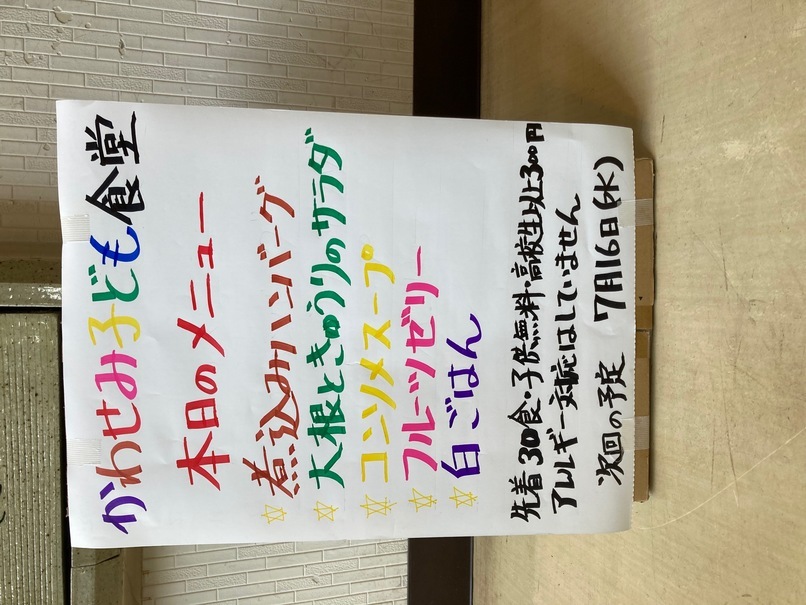 かわせみ子ども食堂
本日のメニュー
☆煮込みハンバーグ
☆大根ときゅうりのサラダ
☆コンソメスープ
☆フルーツゼリー
☆白ごはん
先着30食・子供無料・高校生以上300円
アレルギー対応はしていません
次回の予定 7月16日(水)